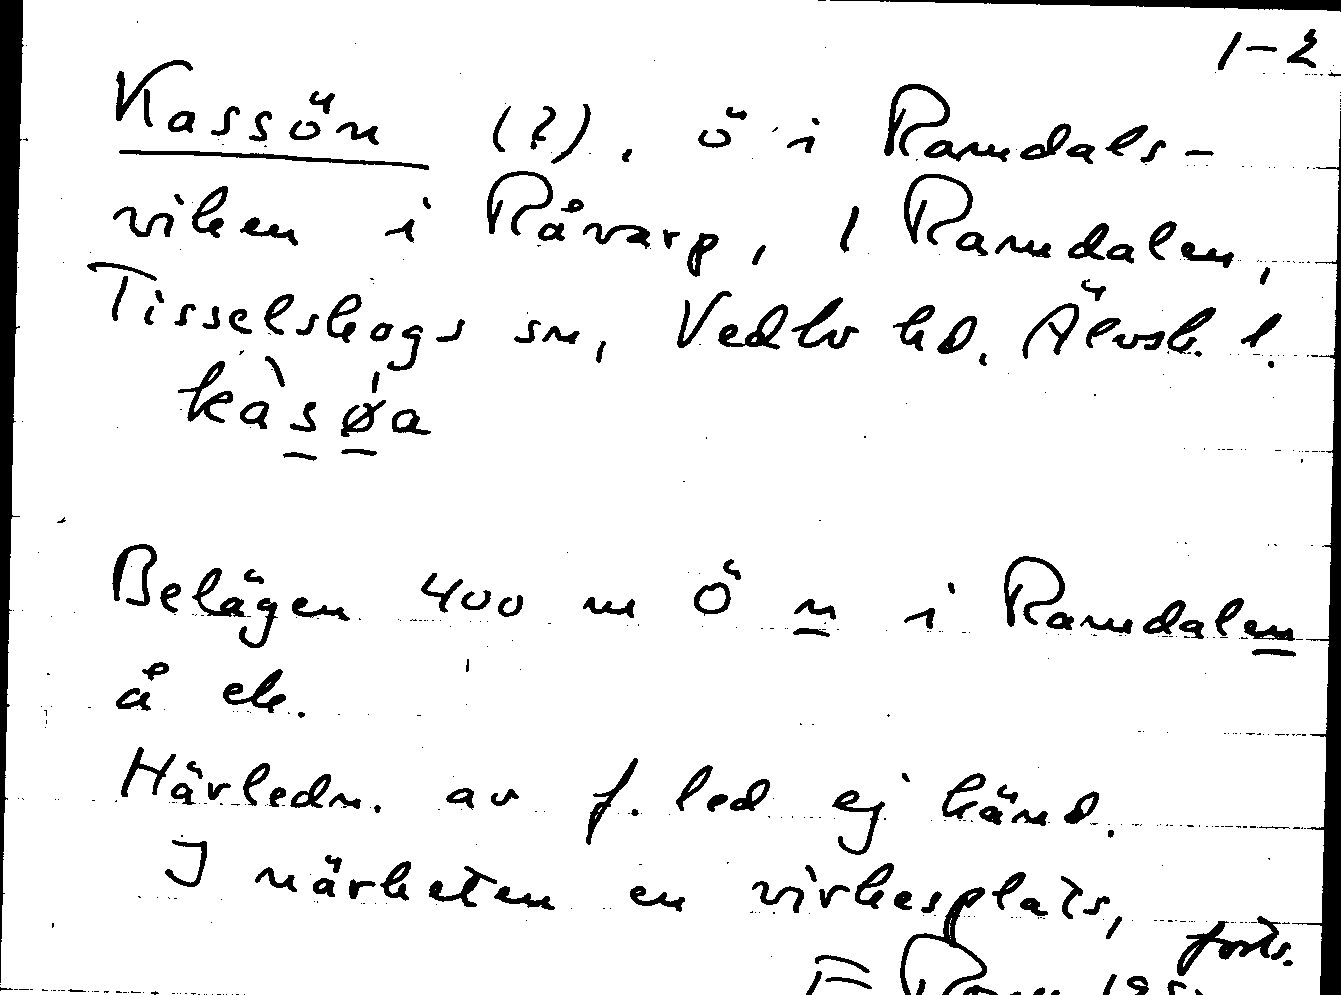 1-2
Kassön (?), ö i Ramdals-
viken i Råvarp, 1 Ramdalen,
Tisselskogs sn, Vedbo hd, Älvsb. l.
kàsǿa
Belägen 400 m Ö n i Ramdalen
å ek.
Härledn. av f. led ej känd.
I närheten en virkesplats,
forts.